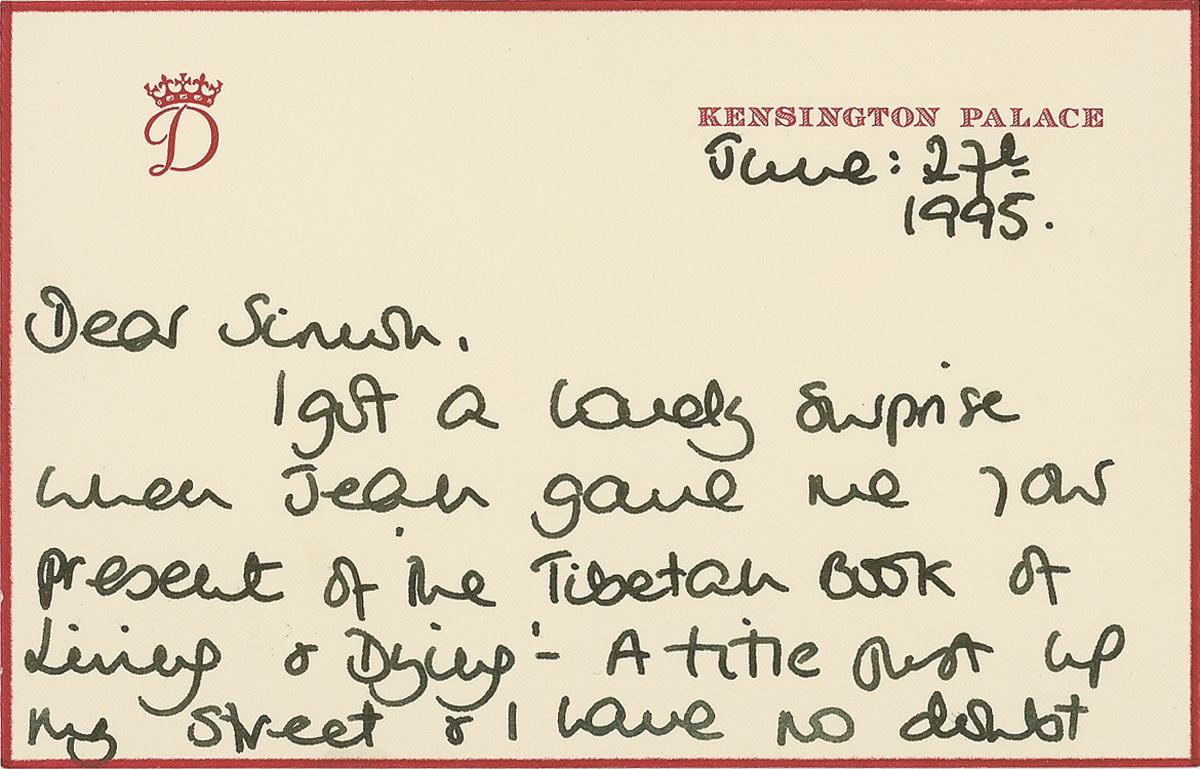 D
KENSINGTON PALACE
June: 27th
1995.
Dear
I got a lovely surprise
when Jean gave me your
present of 'the Tibetan Book of
Living & Dying' - A title just up
my street & I have no doubt